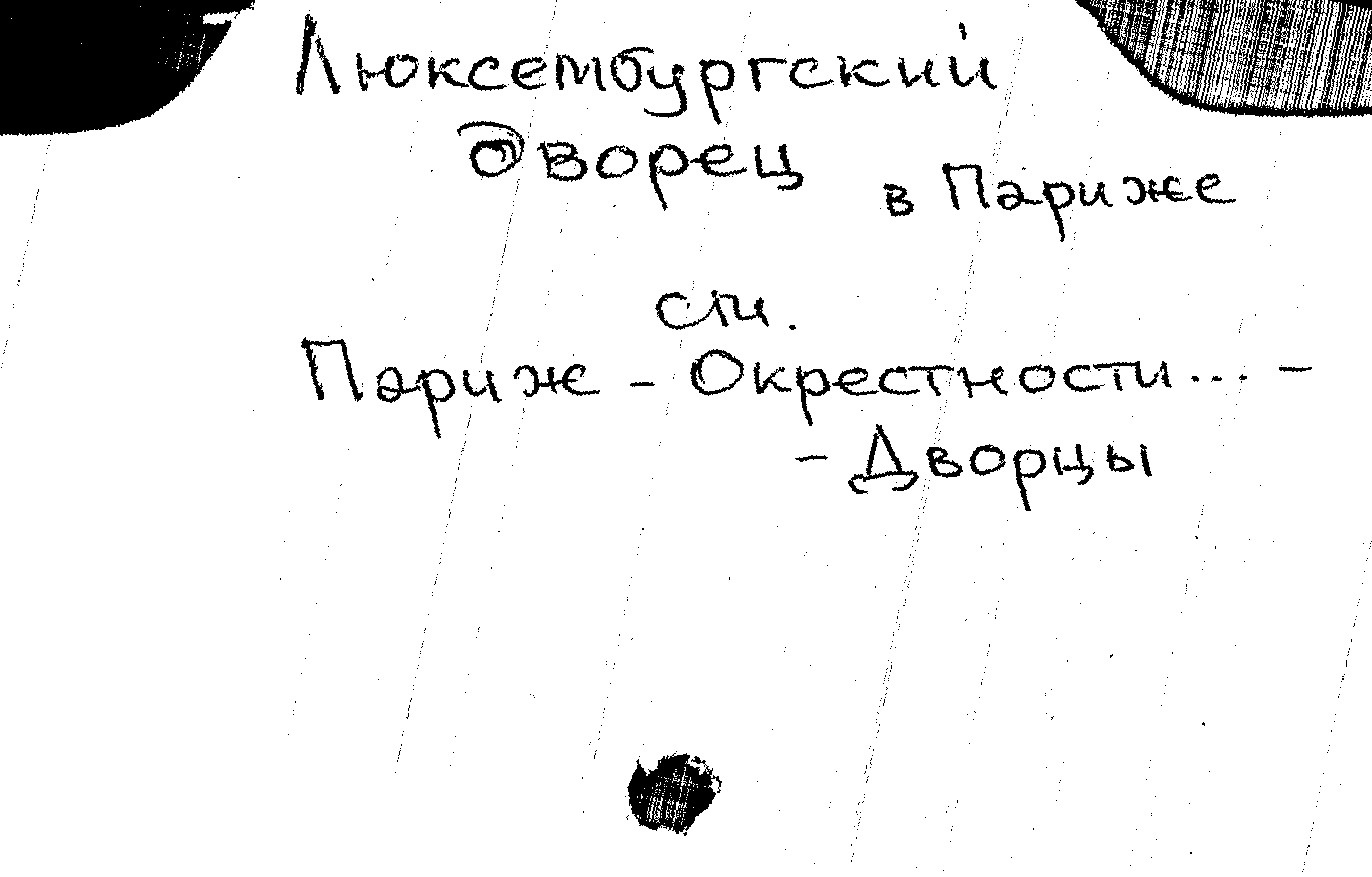 Люксембургский
дворец
в Париже
см.
Париж - Окрестности... -
- Дворцы